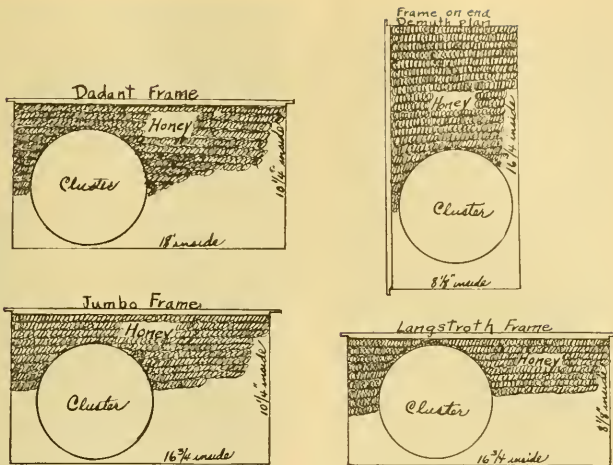 Dadant Frame
Honey
Cluster
10 1/4" inside
18" inside
Frame on end
Demuth plan
Honey
16 3/4 inside
Cluster
8 1/8" inside
Jumbo Frame
Honey
Cluster
10 1/4" inside
16 3/4 inside
Langstroth Frame
Honey
Cluster
8 1/8" inside
16 3/4 inside